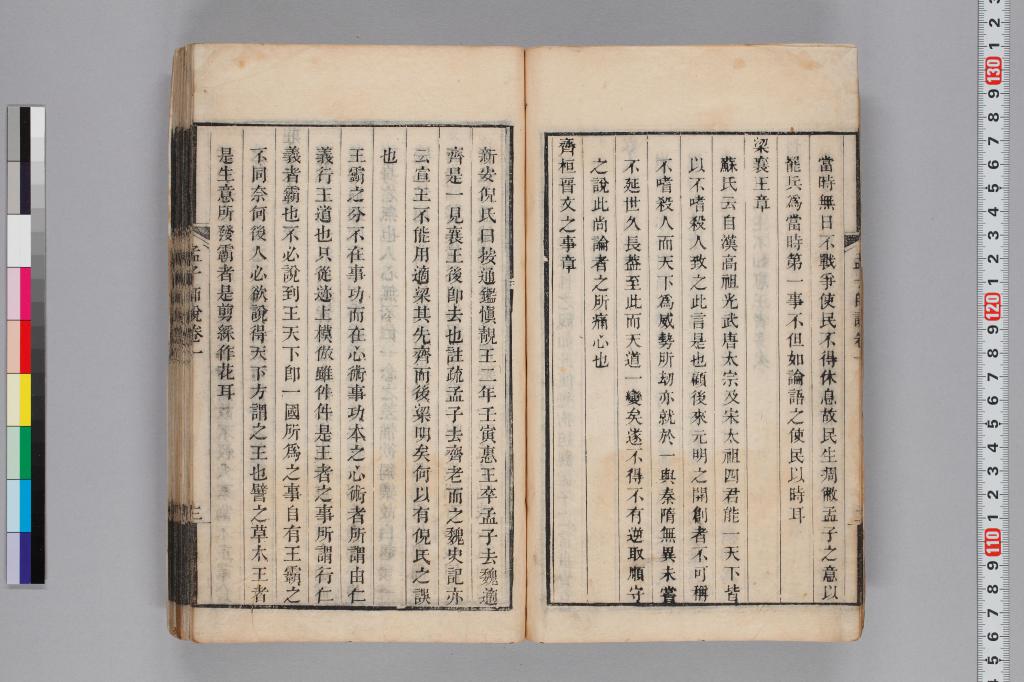 當時無日不戰爭使民不得休息故民生凋敝孟子之意以
罷兵爲當時第一事不但如論語之使民以時耳
梁襄王章
蘇氏云自漢高祖光武唐太宗及宋太祖四君能一天下皆
以不嗜殺人致之此言是也顧後來元明之開創者不可稱
不嗜殺人而天下爲威勢所刼亦就於一與秦隋無異未嘗
不延世久長蓋至此而天道一變矣遂不得不有逆取順守
之說此尚論者之所痛心也
齊桓晉文之事章
新安倪氏曰按通鑑愼靚王二年壬寅惠王卒孟子去魏適
齊是一見襄王後卽去也註疏孟子去齊老而之魏史記亦
云宣王不能用適梁其先齊而後梁明矣何以有倪氏之誤
也
王霸之分不在事功而在心術事功本之心術者所謂由仁
義行王道也只從迹上模倣雖件件是王者之事所謂行仁
義者霸也不必說到王天下卽一國所爲之事自有王霸之
不同奈何後人必欲說得天下方謂之王也譬之草木王者
是生意所發霸者是剪綵作花耳
孟子師說卷一
三
12
130
9
8
7
6
5
4
3
2
1
120
9
8
7
6
5
4
3
2
1
110
9
8
7
6
5